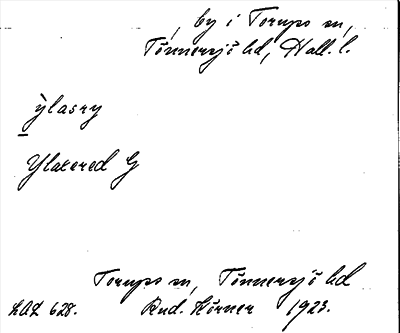 , by i Torups sn,
Tönnersjö hd, Hall. l.
ỳlasry
Ylasered G
Torups sn, Tönnersjö hd
LAL 628. Rud. Körner 1923.